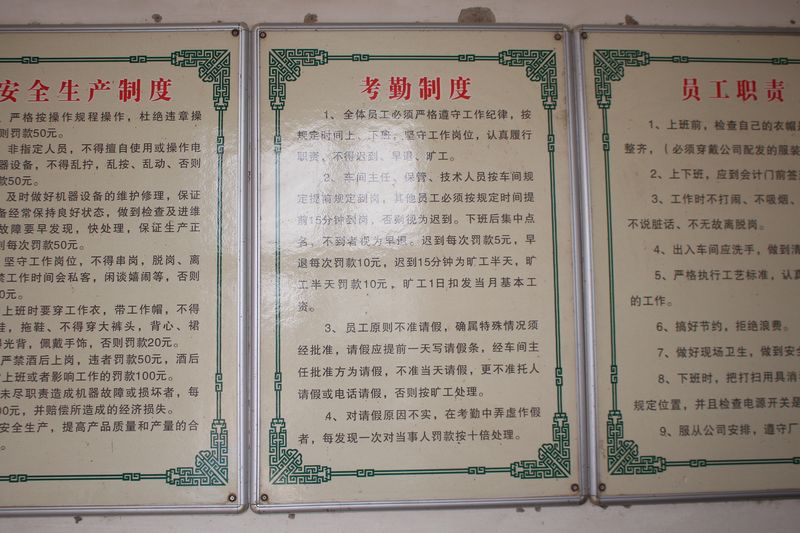 安全生产制度
严格按操作规程操作，杜绝违章操
则罚款50元。
非指定人员，不得擅自使用或操作电
器设备，不得乱拧，乱按、乱动、否则
款50元。
及时做好机器设备的维护修理，保证
备经常保持良好状态，做到检查及进维
故障要早发现，快处理，保证生产正
则每次罚款50元。
坚守工作岗位，不得串岗，脱岗、离
禁工作时间会私客，闲谈嬉闹等，否则
0元。
上班时要穿工作衣，带工作帽，不得
鞋，拖鞋、不得穿大裤头，背心、裙
得光背，佩戴手饰，否则罚款20元。
严禁酒后上岗，违者罚款50元，酒后
上班或者影响工作的罚款100元。
未尽职责造成机器故障或损坏者，每
00元，并赔偿所造成的经济损失。
安全生产，提高产品质量和产量的合
考勤制度
1、全体员工必须严格遵守工作纪律，按
规定时间上、下班，坚守工作岗位，认真履行
职责，不得迟到、早退、旷工。
2、车间主任、保管、技术人员按车间规
定提前规定到岗，其他员工必须按规定时间提
前15分钟到岗，否则视为迟到。下班后集中点
名，不到者视为早退。迟到每次罚款5元，早
退每次罚款10元，迟到15分钟为旷工半天，旷
工半天罚款10元，旷工1日扣发当月基本工
资。
3、员工原则不准请假，确属特殊情况须
经批准，请假应提前一天写请假条，经车间主
任批准方为请假，不准当天请假，更不准托人
请假或电话请假，否则按旷工处理。
4、对请假原因不实，在考勤中弄虚作假
者，每发现一次对当事人罚款按十倍处理。
员工职责
1、上班前，检查自己的衣帽是
整齐，（必须穿戴公司配发的服装
2、上下班，应到会计门前签
3、工作时不打闹、不吸烟、
不说脏话、不无故离脱岗。
4、出入车间应洗手，做到清
5、严格执行工艺标准，认真
的工作。
6、搞好节约，拒绝浪费。
7、做好现场卫生，做到安全
8、下班时，把打扫用具消
规定位置，并且检查电源开关是
9、服从公司安排，遵守厂